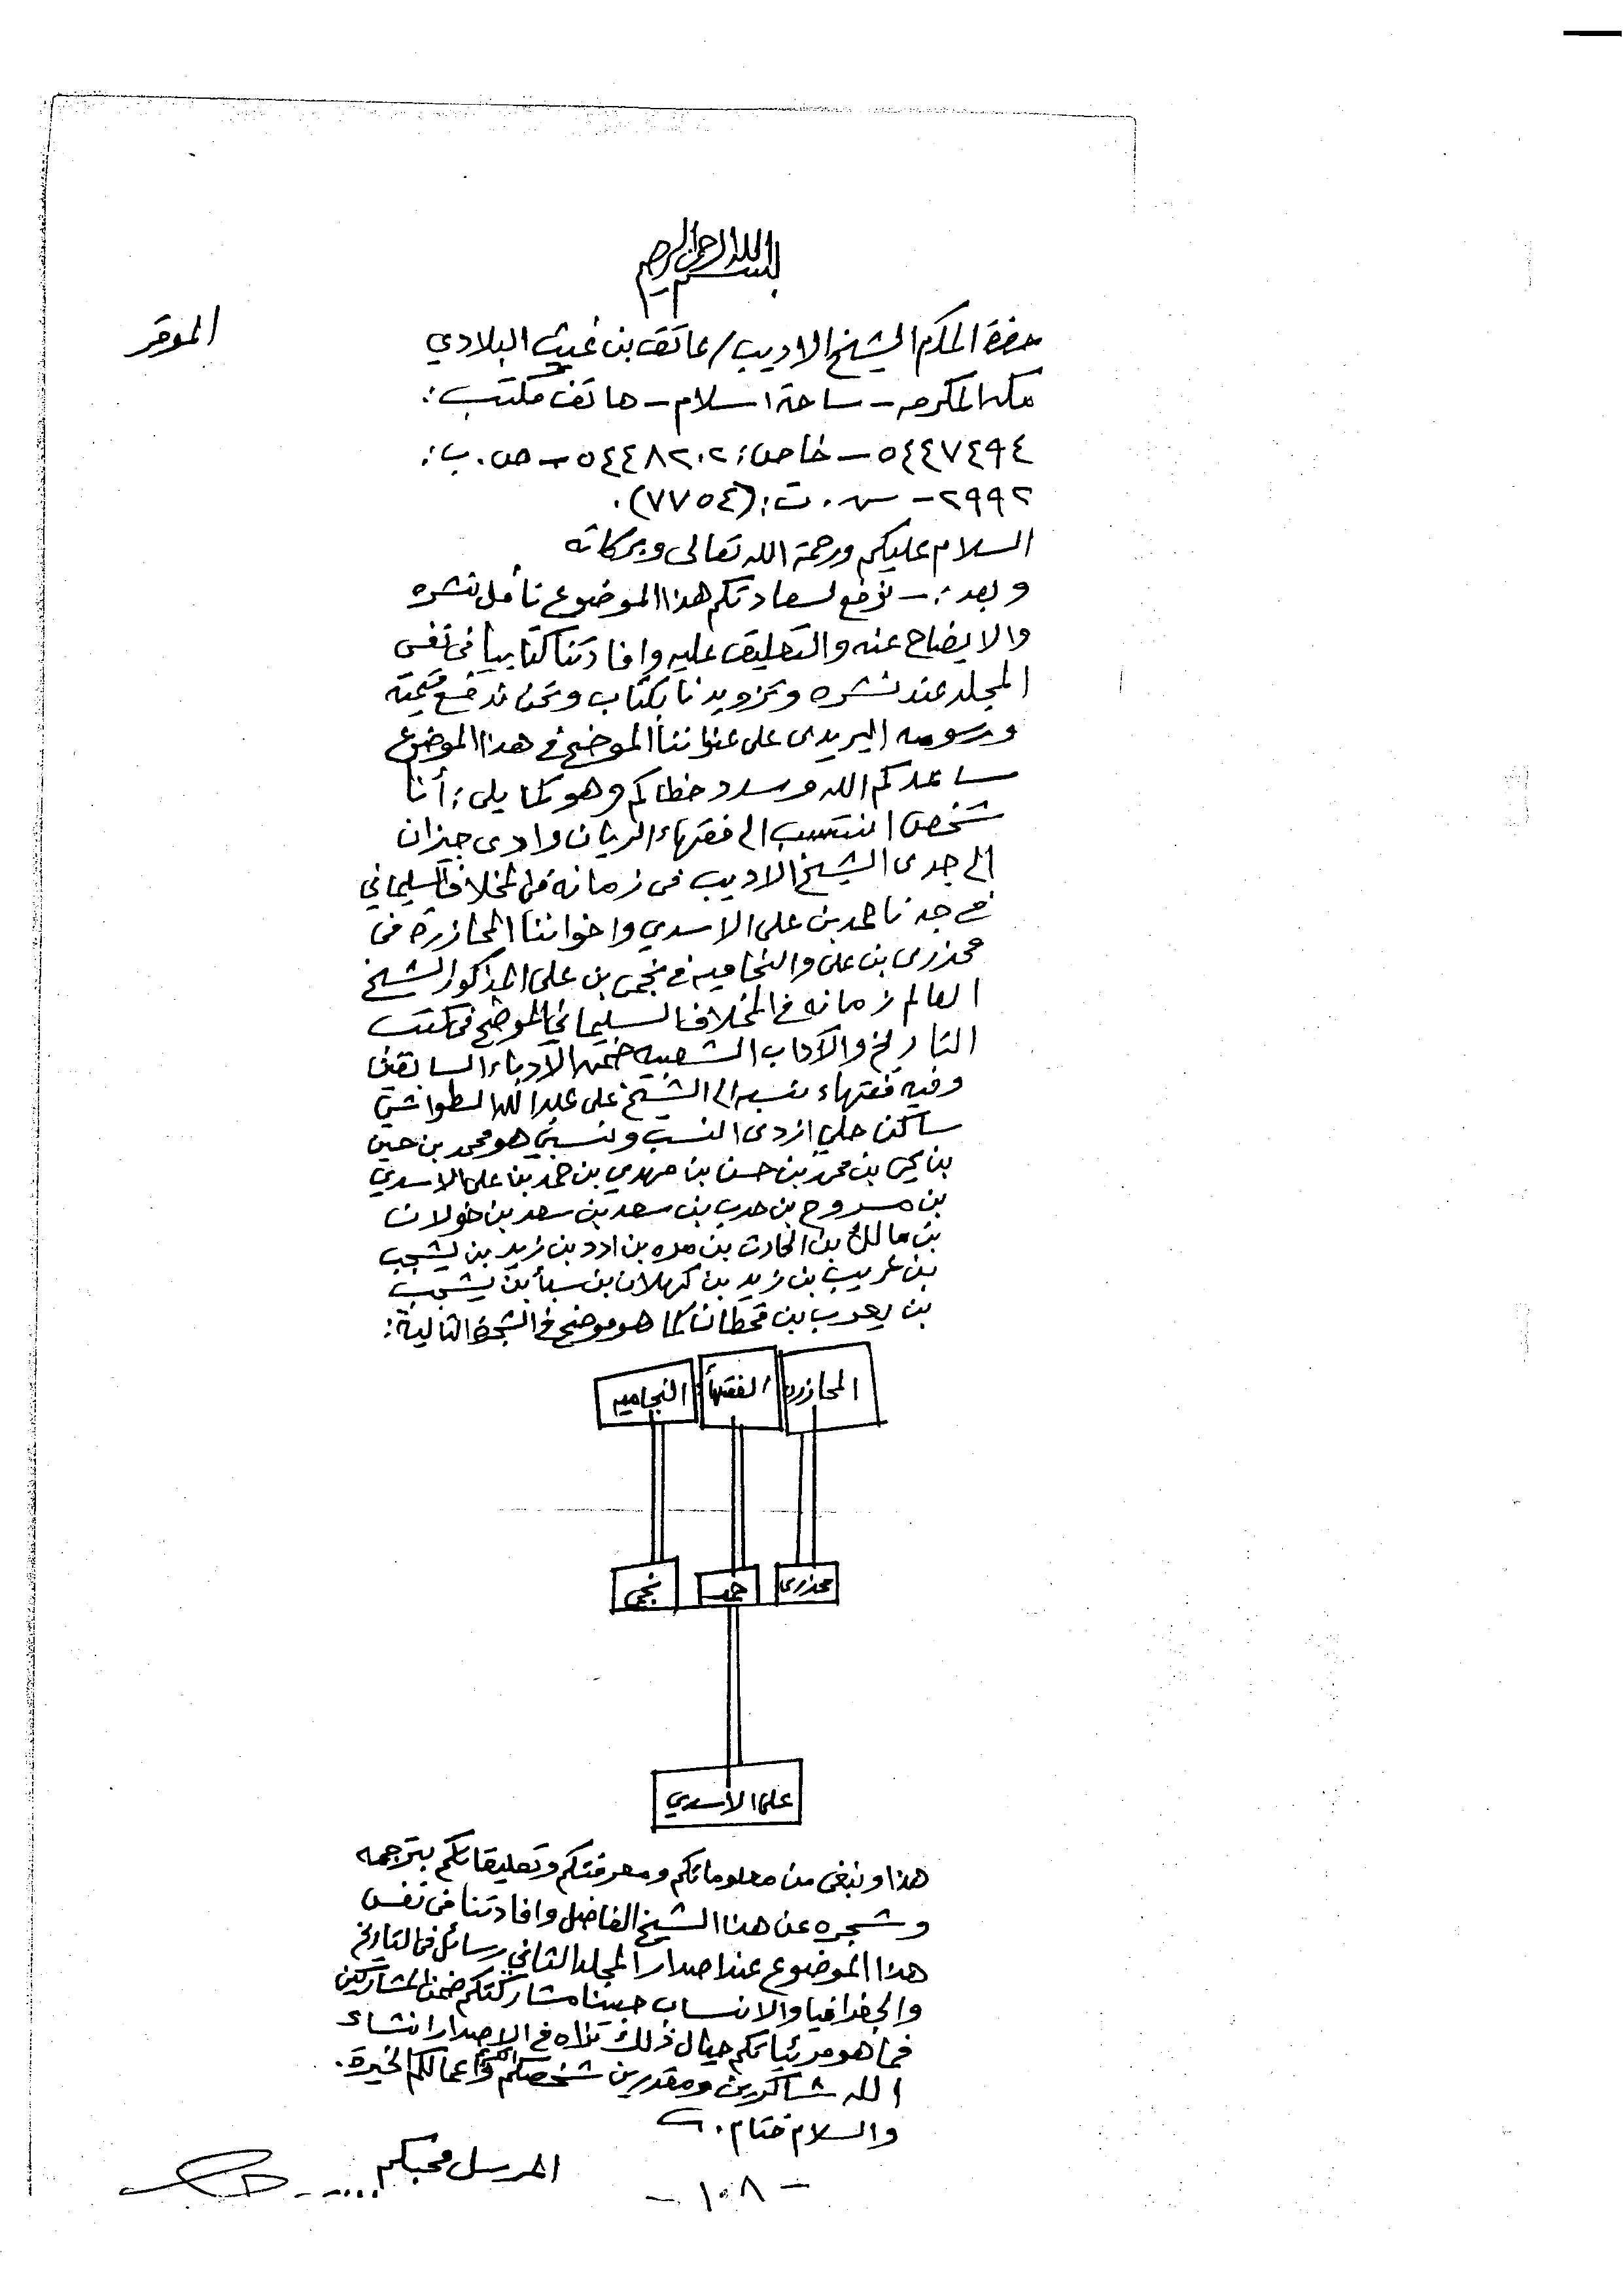 بسم الله الرحمن الرحيم
حضرة المكرم الشيخ الاديب/عاتق بن غيث البلادي الموقر
مكه المكرمه – ساحة اسلام – هاتف مكتب:
٥٤٤٧٤٩٤ – خاص: ٥٤٤٨٢٠٢ – ص.ب:
٢٩٩٢ – س.ت: (٧٧٥٤).
السلام عليكم ورحمة الله تعالى وبركاته
وبعد :– نرفع لسعادتكم هذا الموضوع نأمل نشره
والايضاح عنه والتعليق عليه وافادتنا كتابياً في نفس
المجلد عند نشره وتزويدنا بكتاب ونحن ندفع قيمته
ورسومه البريدى على عنواننا الموضح في هذا الموضوع
ساعدكم الله وسدد خطاكم وهو كما يلي: أنا
شخص انتسب الى فقهاء الريان وادى جيزان
الى جدى الشيخ الاديب في زمانه في المخلاف السليماني
في جدنا حمد بن على الاسدي واخواننا المحازره في
محزرى بن على والنجاميه في نجمي بن على المذكور الشيخ
العالم زمانه في المخلاف السليماني الموضح في كتب
التاريخ والآداب الشعبيه ضمن الادباء السابقين
وفيه فقهاء نسبه الى الشيخ على عبدالله الطواشي
ساكن حلي ازدى النسب ونسبي هو محمد بن حسين
بن يحي بن محمد بن حسن بن مهدي بن حمد بن على الاسدي
بن مسروح بن حرب بن سعد بن سعد بن خولان
بن مالك بن الحارث بن مره بن ادد بن زيد بن يشجب
بن عريب بن زيد بن كهلان بن سبأ بن يشجب
بن يعرب بن قحطان كما هو موضح في الشجرة التالية:
المحازره الفقهاء النجاميه
محزرى حمد نجمي
على الاسدي
هذا ونبغى من معلوماتكم ومعرفتكم وتعليقاتكم بترجمه
وشجره عن هذا الشيخ الفاضل وافادتنا في نفس
هذا الموضوع عند اصدار المجلد الثاني رسائل في التاريخ
والجغرافيا والانساب حبينا مشاركتكم ضمن المشاركين
فما هو مرئياتكم حيال ذلك نراه في الاصدار انشاء
الله شاكرين ومقدرين شخصكم واعمالكم الخيرة.
والسلام ختام.
المرسل محبكم .....
– ١٠٨ –